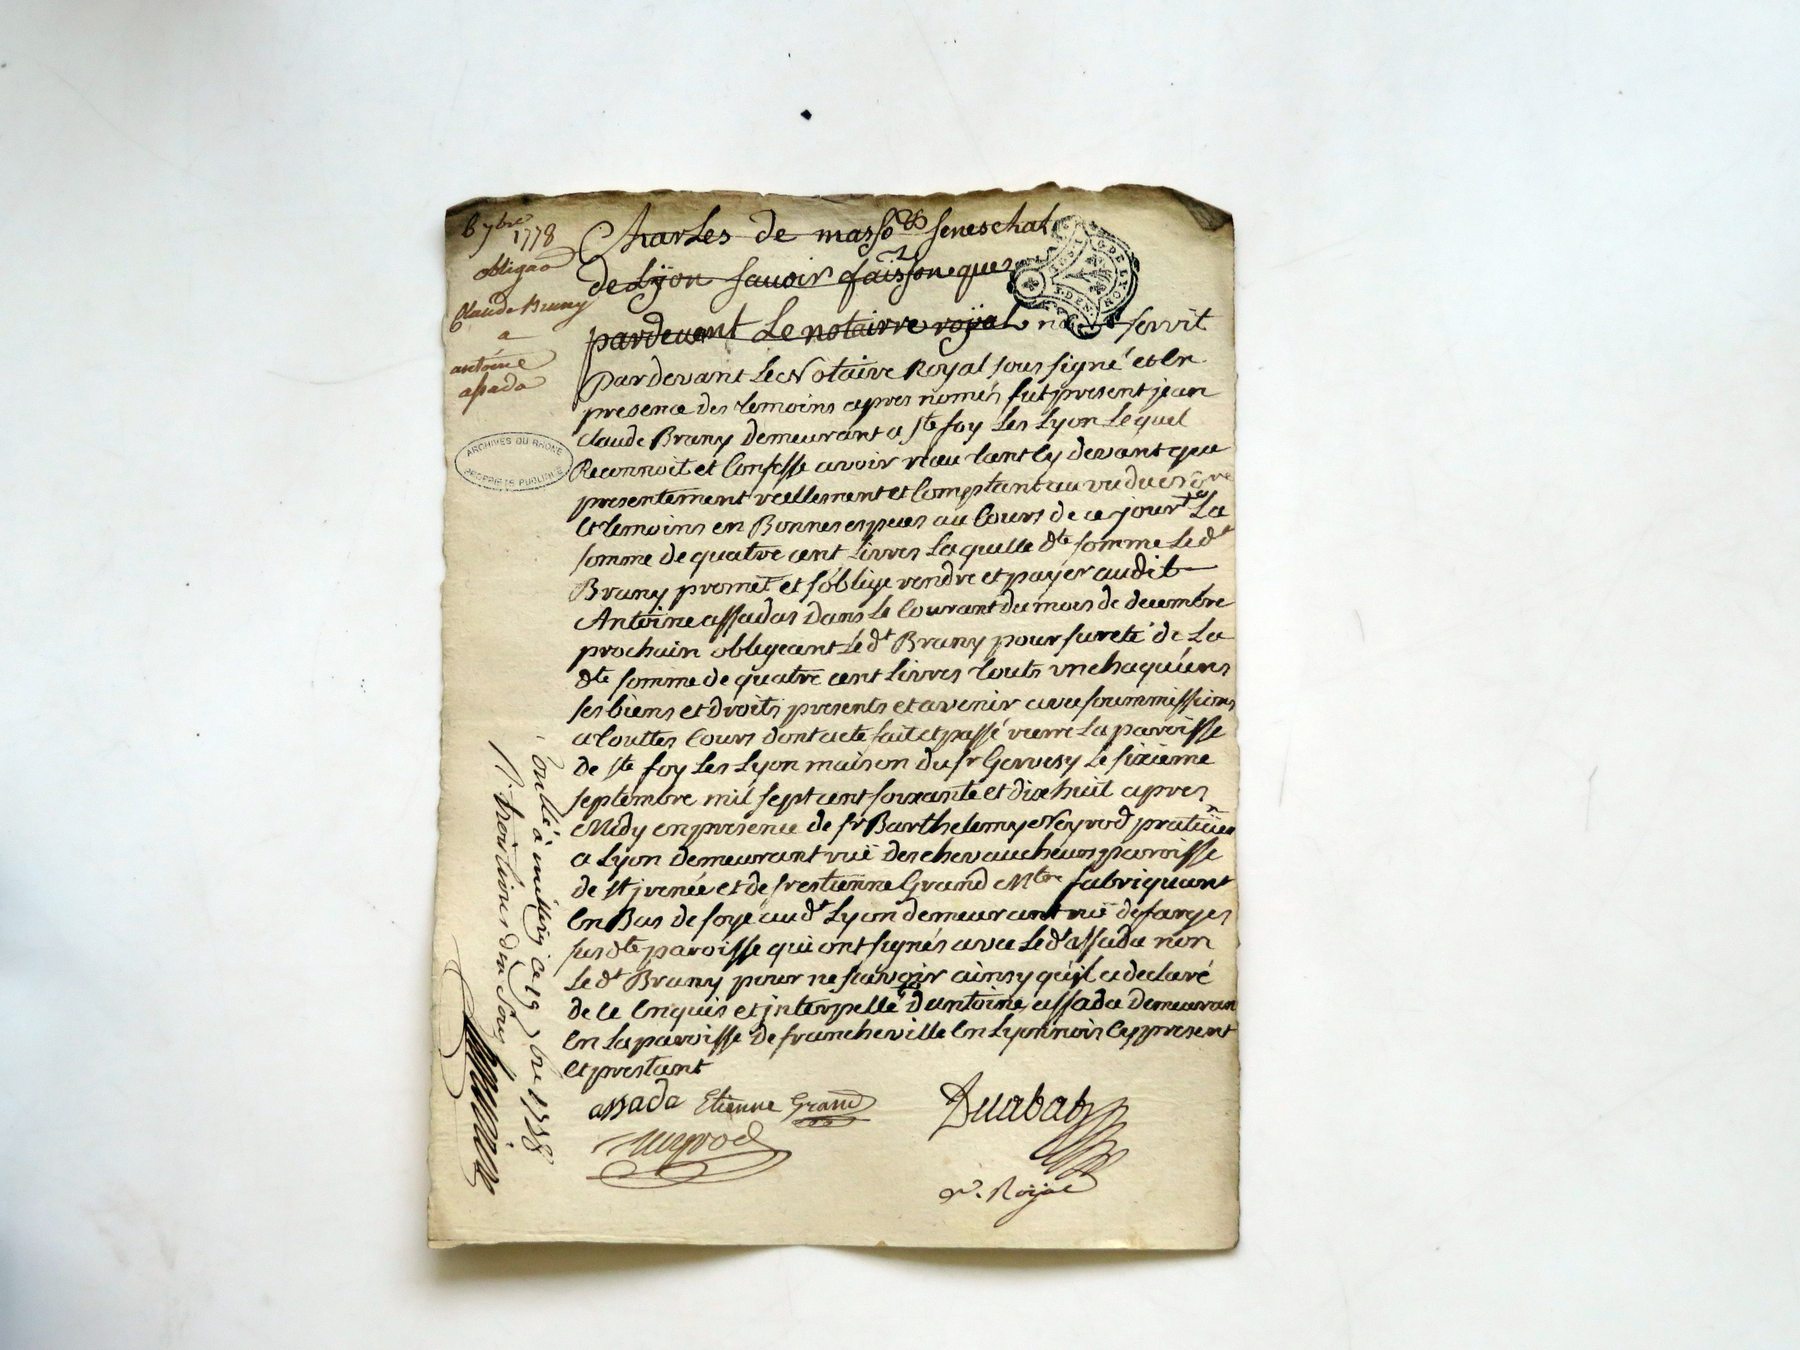 6 7bre
1778
obligaõn
Claude Bruny
a
antoine
assada
ARCHIVES DU RHÔNE
PROPRIÉTÉ PUBLIQUE
Charles de masso seneschal
de Lÿon savoir faisson que
pardevant Le notairre royal servit
GDE LYON
Pardevant Le Notaire Royal sous signé et En
presence des temoins apres només fut present jean
Claude Bruny demeurant a ste foy Les Lyon Lequel
Reconnoit et Confesse avoir tant Cy devant que
presentement reellement et Comptant au vu du
et temoins en Bonnes especes au Cours de ce jour La
somme de quatre cent Livres Laquelle dte somme Led't
Bruny promet et s'oblige rendre et payer audit
Antoine assadas dans le Courant du mois de decembre
prochain obligeant Led't Bruny pour sureté de La
dte somme de quatre cent Livres touts un chaquuns
ses biens et droits presents et avenir avec soummissions
a touttes Cours dont acte fait et passé La paroisse
de ste foy Les Lyon maison du sr Gervesy Le sixieme
septembre mil sept cent soixante et dix huit apres
Midy en presence de sr Barthelemy Neyrod praticien
a Lyon demeurant ruë des chevaucheurs paroisse
de st jrenée et de sr estienne Grand Mtre fabriquant
En Bas de soye aud't Lyon demeurant ruë desfarges
susdte paroisse qui ont signés avec Led't assada non
Led't Bruny pour ne savoir ainsy qu'il a declaré
de ce Enquis et jnterpellé d'antoine assada demeuran
En La paroisse de francheville En Lyonnois Cy present
et prestant
assada Etienne Grand
Neyrod
Duabat
Nre Royal
Conllé à ce 19 7bre 1778
R. trois livres dix sous